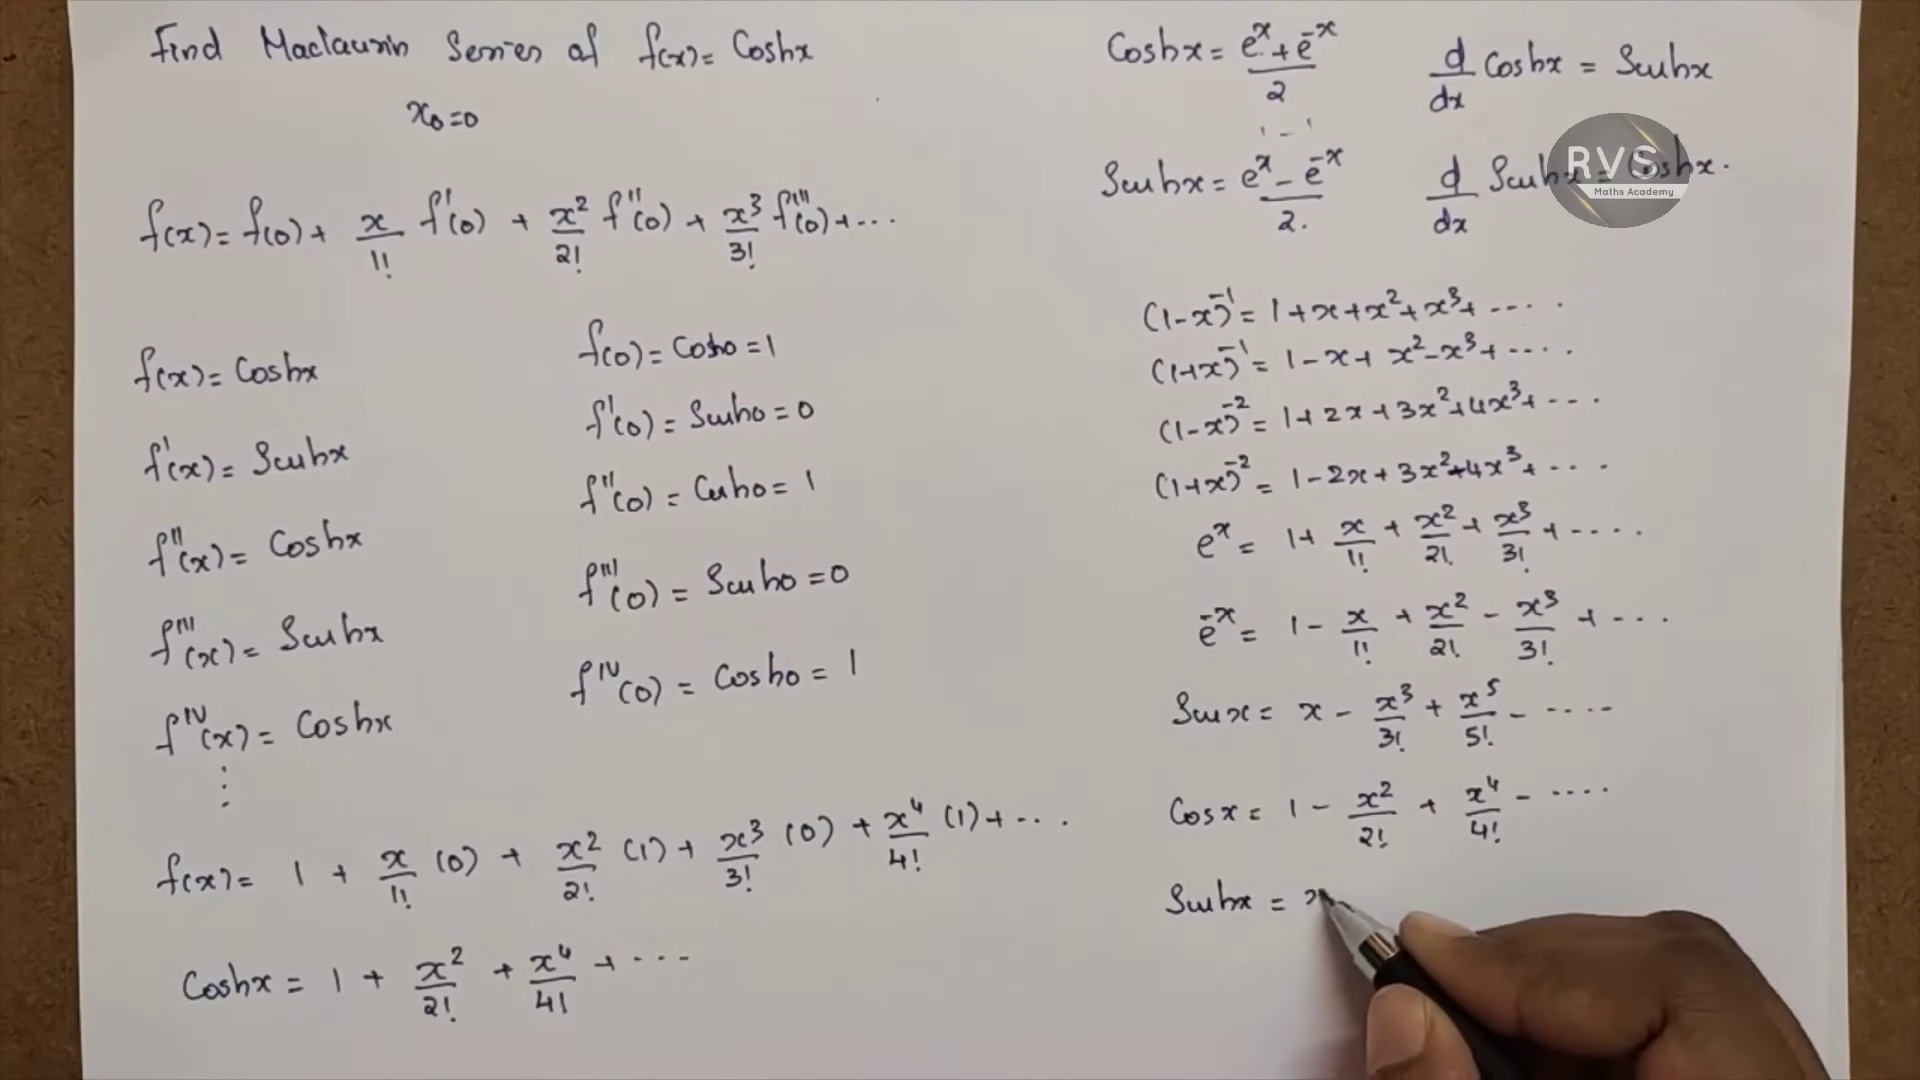 Find Maclaurin Series of f(x) = Coshx
x₀=0
f(x) = f(0) + x/1! f'(0) + x²/2! f''(0) + x³/3! f'''(0) + ...
f(x) = Coshx
f(0) = Cosh0 = 1
f'(x) = Sinhx
f'(0) = Sinh0 = 0
f''(x) = Coshx
f''(0) = Cosh0 = 1
f'''(x) = Sinhx
f'''(0) = Sinh0 = 0
f^IV(x) = Coshx
f^IV(0) = Cosh0 = 1
⋮
f(x) = 1 + x/1! (0) + x²/2! (1) + x³/3! (0) + x⁴/4! (1) + ...
Coshx = 1 + x²/2! + x⁴/4! + ...
Coshx = (e^x + e^-x)/2
d/dx Coshx = Sinhx
Sinhx = (e^x - e^-x)/2.
d/dx Sinhx = Coshx.
RVS
Maths Academy
(1-x)^-1 = 1+x+x²+x³+ ....
(1+x)^-1 = 1-x+x²-x³+ ....
(1-x)^-2 = 1+2x+3x²+4x³+ ...
(1+x)^-2 = 1-2x+3x²-4x³+ ...
e^x = 1+ x/1! + x²/2! + x³/3! + ....
e^-x = 1 - x/1! + x²/2! - x³/3! + ...
Sinx = x - x³/3! + x⁵/5! - ....
Cosx = 1 - x²/2! + x⁴/4! - ....
Sinhx = x